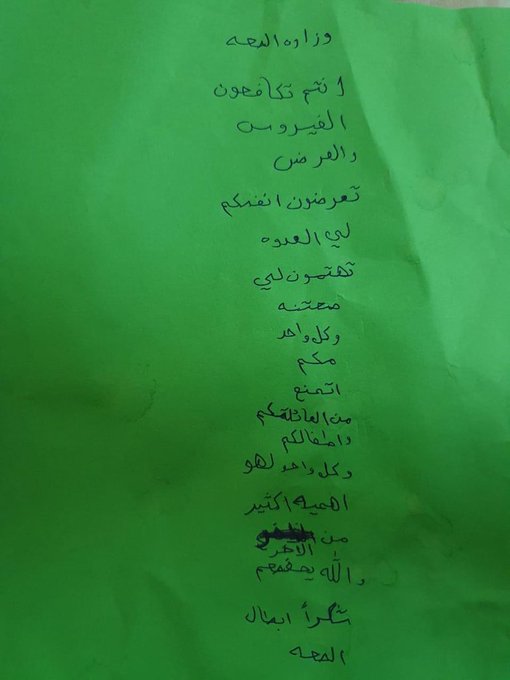 وزاره الصحه
انتم تكافحون
الفيروس
والمرض
تعرضون انفسكم
لي العدوه
تهتمون لي
صحتنه
وكل واحد
مكم
اتمنع
من العائلتكم
واطفالكم
وكل واحد لهو
اهميه اكثير
من
الآخر
والله يحفضكم
شكراً ابطال
الصحه